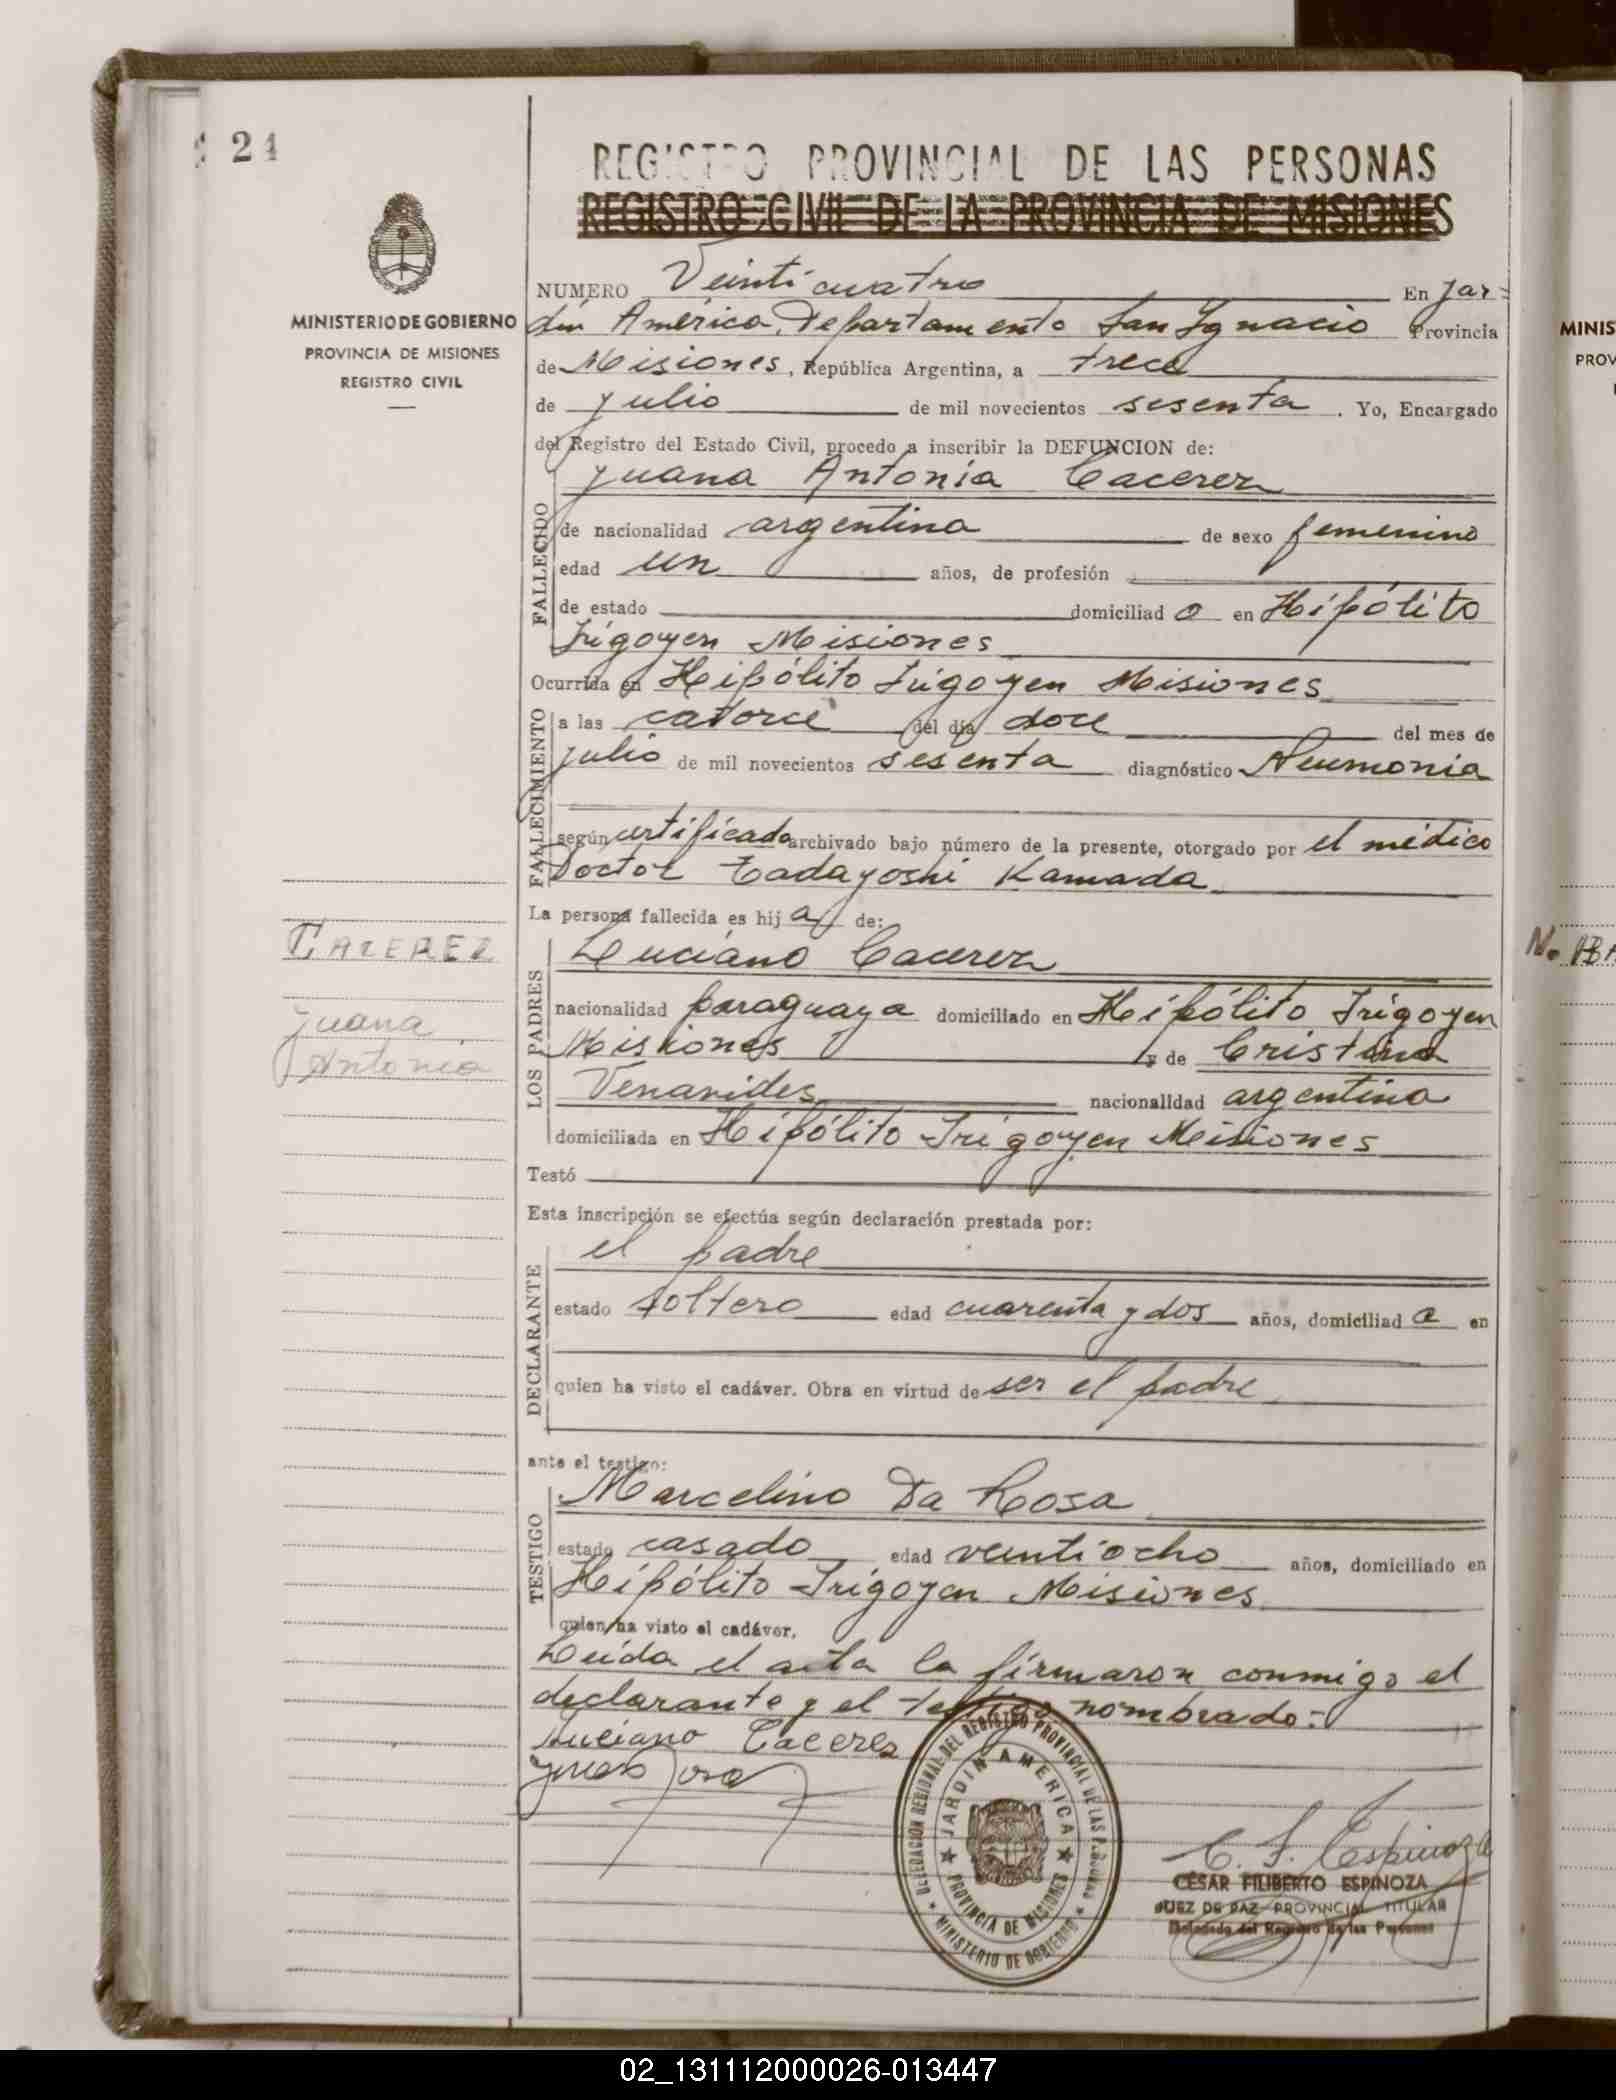 24
REGISTRO PROVINCIAL DE LAS PERSONAS
REGISTRO CIVIL DE LA PROVINCIA DE MISIONES
MINISTERIO DE GOBIERNO
PROVINCIA DE MISIONES
REGISTRO CIVIL
NUMERO Veinticuatro En Jar=
dín América, Departamento San Ignacio Provincia
de Misiones, República Argentina, a trece
de julio de mil novecientos sesenta. Yo, Encargado
del Registro del Estado Civil, procedo a inscribir la DEFUNCION de:
FALLECIDO
Juana Antonia Cacerez
de nacionalidad argentina de sexo femenino
edad un años, de profesión
de estado domiciliad o en Hipólito
Irigoyen Misiones
Ocurrida en Hipólito Irigoyen Misiones
FALLECIMIENTO
a las catorce del día doce del mes de
julio de mil novecientos sesenta diagnóstico Neumonia
según certificado archivado bajo número de la presente, otorgado por el médico
Doctor Tadayoshi Kamada
La persona fallecida es hij a de:
CACEREZ
Juana
Antonia
LOS PADRES
Luciano Cacerez
nacionalidad paraguaya domiciliado en Hipólito Irigoyen
Misiones y de Cristina
Venavides nacionalidad argentina
domiciliada en Hipólito Irigoyen Misiones
Testó
Esta inscripción se efectúa según declaración prestada por:
DECLARANTE
el padre
estado soltero edad cuarenta y dos años, domiciliad o en
quien ha visto el cadáver. Obra en virtud de ser el padre
ante el testigo:
TESTIGO
Marcelino Da Rosa
estado casado edad veintiocho años, domiciliado en
Hipólito Irigoyen Misiones
quien ha visto el cadáver.
Leída el acta la firmaron conmigo el
declarante y el testigo nombrado:-
Luciano Caceres
DELEGACION REGIONAL DEL REGISTRO PROVINCIAL DE LAS PERSONAS
JARDIN AMERICA
PROVINCIA DE MISIONES
MINISTERIO DE GOBIERNO
C. F. Espinoza
CÉSAR FILIBERTO ESPINOZA
JUEZ DE PAZ PROVINCIAL TITULAR
Delegado del Registro de las Personas
MINIS
PROV
02_131112000026-013447